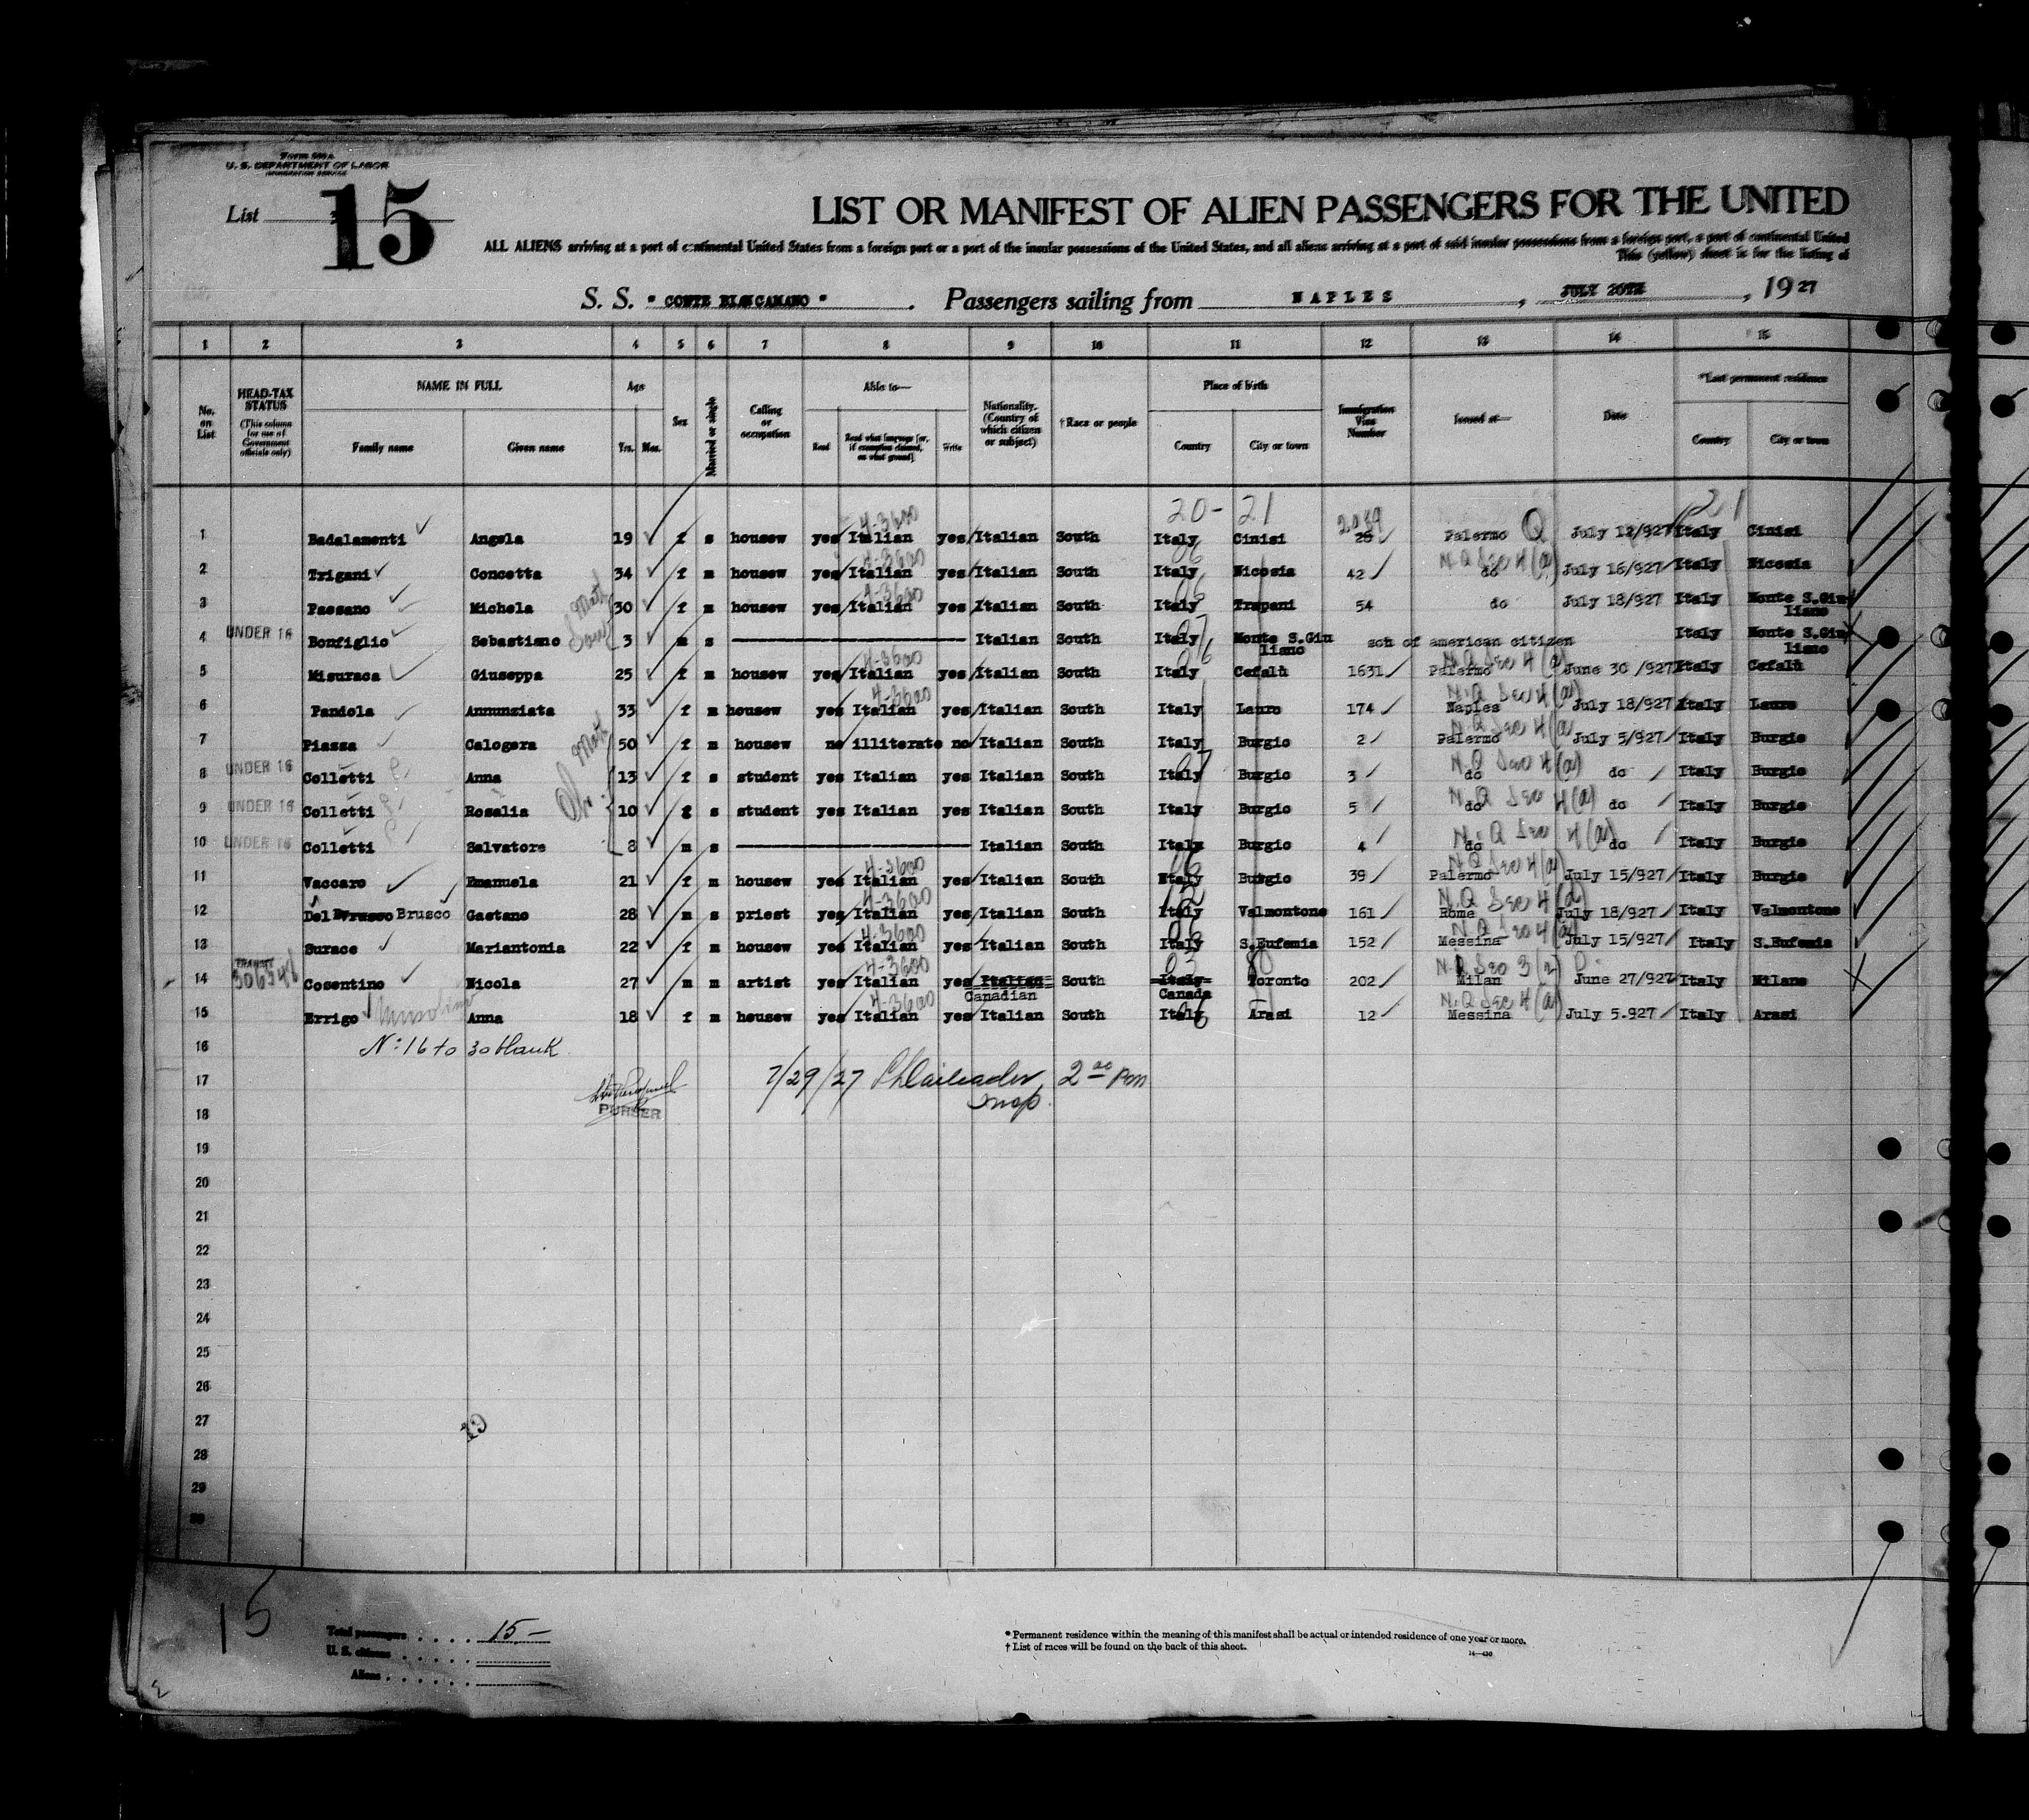 Form 500 A
U. S. DEPARTMENT OF LABOR
IMMIGRATION SERVICE
List 15
LIST OR MANIFEST OF ALIEN PASSENGERS FOR THE UNITED
ALL ALIENS arriving at a port of continental United States from a foreign port or a port of the insular possessions of the United States, and all aliens arriving at a port of said insular possessions from a foreign port, a port of continental United
This (yellow) sheet is for the listing of
S. S. " CONTE BIANCAMANO " . Passengers sailing from NAPLES , JULY 20TH , 19 27
1 2 3 4 5 6 7 8 9 10 11 12 13 14 15
No. on List
HEAD-TAX STATUS (This column for use of Government officials only)
NAME IN FULL Family name Given name
Age Yrs. Mos.
Sex
Married or single
Calling or occupation
Able to— Read Read what language [or, if exemption claimed, on what ground] Write
Nationality. (Country of which citizen or subject)
† Race or people
Place of birth Country City or town
Immigration Visa Number
Issued at—
Date
*Last permanent residence Country City or town
20- 21 21
4-3600 2039 Q
1 Badalamenti Angela 19 f s housew yes Italian yes Italian South Italy Cinisi 29 Palermo July 12/927 Italy Cinisi
4-3600 06 N.Q Sec 4(a)
2 Trigani Concetta 34 f m housew yes Italian yes Italian South Italy Nicosia 42 do July 16/927 Italy Nicosia
4-3600 06
3 Paesano Michela 30 f m housew yes Italian yes Italian South Italy Trapani 54 do July 18/927 Italy Monte S.Giu liano
4 UNDER 16 Bonfiglio Sebastiano 3 m s Italian South Italy Monte S.Giu liano son of american citizen Italy Monte S.Giu liano
4-3600 06 N.Q Sec 4(a)
5 Misuraca Giuseppa 25 f m housew yes Italian yes Italian South Italy Cefalù 1631 Palermo June 30 /927 Italy Cefalù
4-3600 N.Q Sec 4(a)
6 Pandola Annunziata 33 f m housew yes Italian yes Italian South Italy Lauro 174 Naples July 18/927 Italy Lauro
N.Q Sec 4(a
7 Piazza Calogera 50 f m housew no illiterate no Italian South Italy Burgio 2 Palermo July 5/927 Italy Burgio
N.Q Sec 4(a)
8 UNDER 16 Colletti Anna 13 f s student yes Italian yes Italian South Italy Burgio 3 do do Italy Burgio
N.Q Sec 4(a)
9 UNDER 16 Colletti Rosalia 10 f s student yes Italian yes Italian South Italy Burgio 5 do do Italy Burgio
N.Q Sec 4(a)
10 UNDER 16 Colletti Salvatore 8 m s Italian South Italy Burgio 4 do do Italy Burgio
4-3600 N.Q Sec 4(a)
11 Vaccaro Emanuela 21 f m housew yes Italian yes Italian South Italy Burgio 39 Palermo July 15/927 Italy Burgio
4-3600 N.Q Sec 4(d)
12 Del Brusco Gaetano 28 m s priest yes Italian yes Italian South Italy Valmontone 161 Rome July 18/927 Italy Valmontone
4-3600 06 N.Q Sec 4(a)
13 Surace Mariantonia 22 f m housew yes Italian yes Italian South Italy S.Eufemia 152 Messina July 15/927 Italy S.Eufemia
TRANSIT 4-3600 03 80 N.Q Sec 3(2)
14 Cosentino Nicola 27 m m artist yes Italian yes Italian Canadian South Italy Canada Toronto 202 Milan June 27/927 Italy Milano
4-3600 N.Q Sec 4(a)
15 Errigo Anna 18 f m housew yes Italian yes Italian South Italy Arasi 12 Messina July 5.927 Italy Arasi
16 N: 16 to 30 blank
17 7/29/27
PURSER
18 Insp.
19
20
21
22
23
24
25
26
27
19
28
29
30
15
Total passengers . . . . 15-
U. S. citizens . . . . .
Aliens . . . . . .
* Permanent residence within the meaning of this manifest shall be actual or intended residence of one year or more.
† List of races will be found on the back of this sheet.
14—430